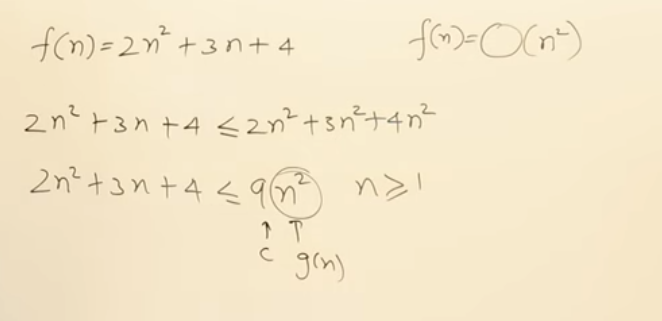 f(n)=2n²+3n+4 f(n)=O(n²)
2n²+3n+4 ≤2n²+3n²+4n²
2n²+3n+4 ≤ 9n² n≥1
↑ ↑
c g(n)